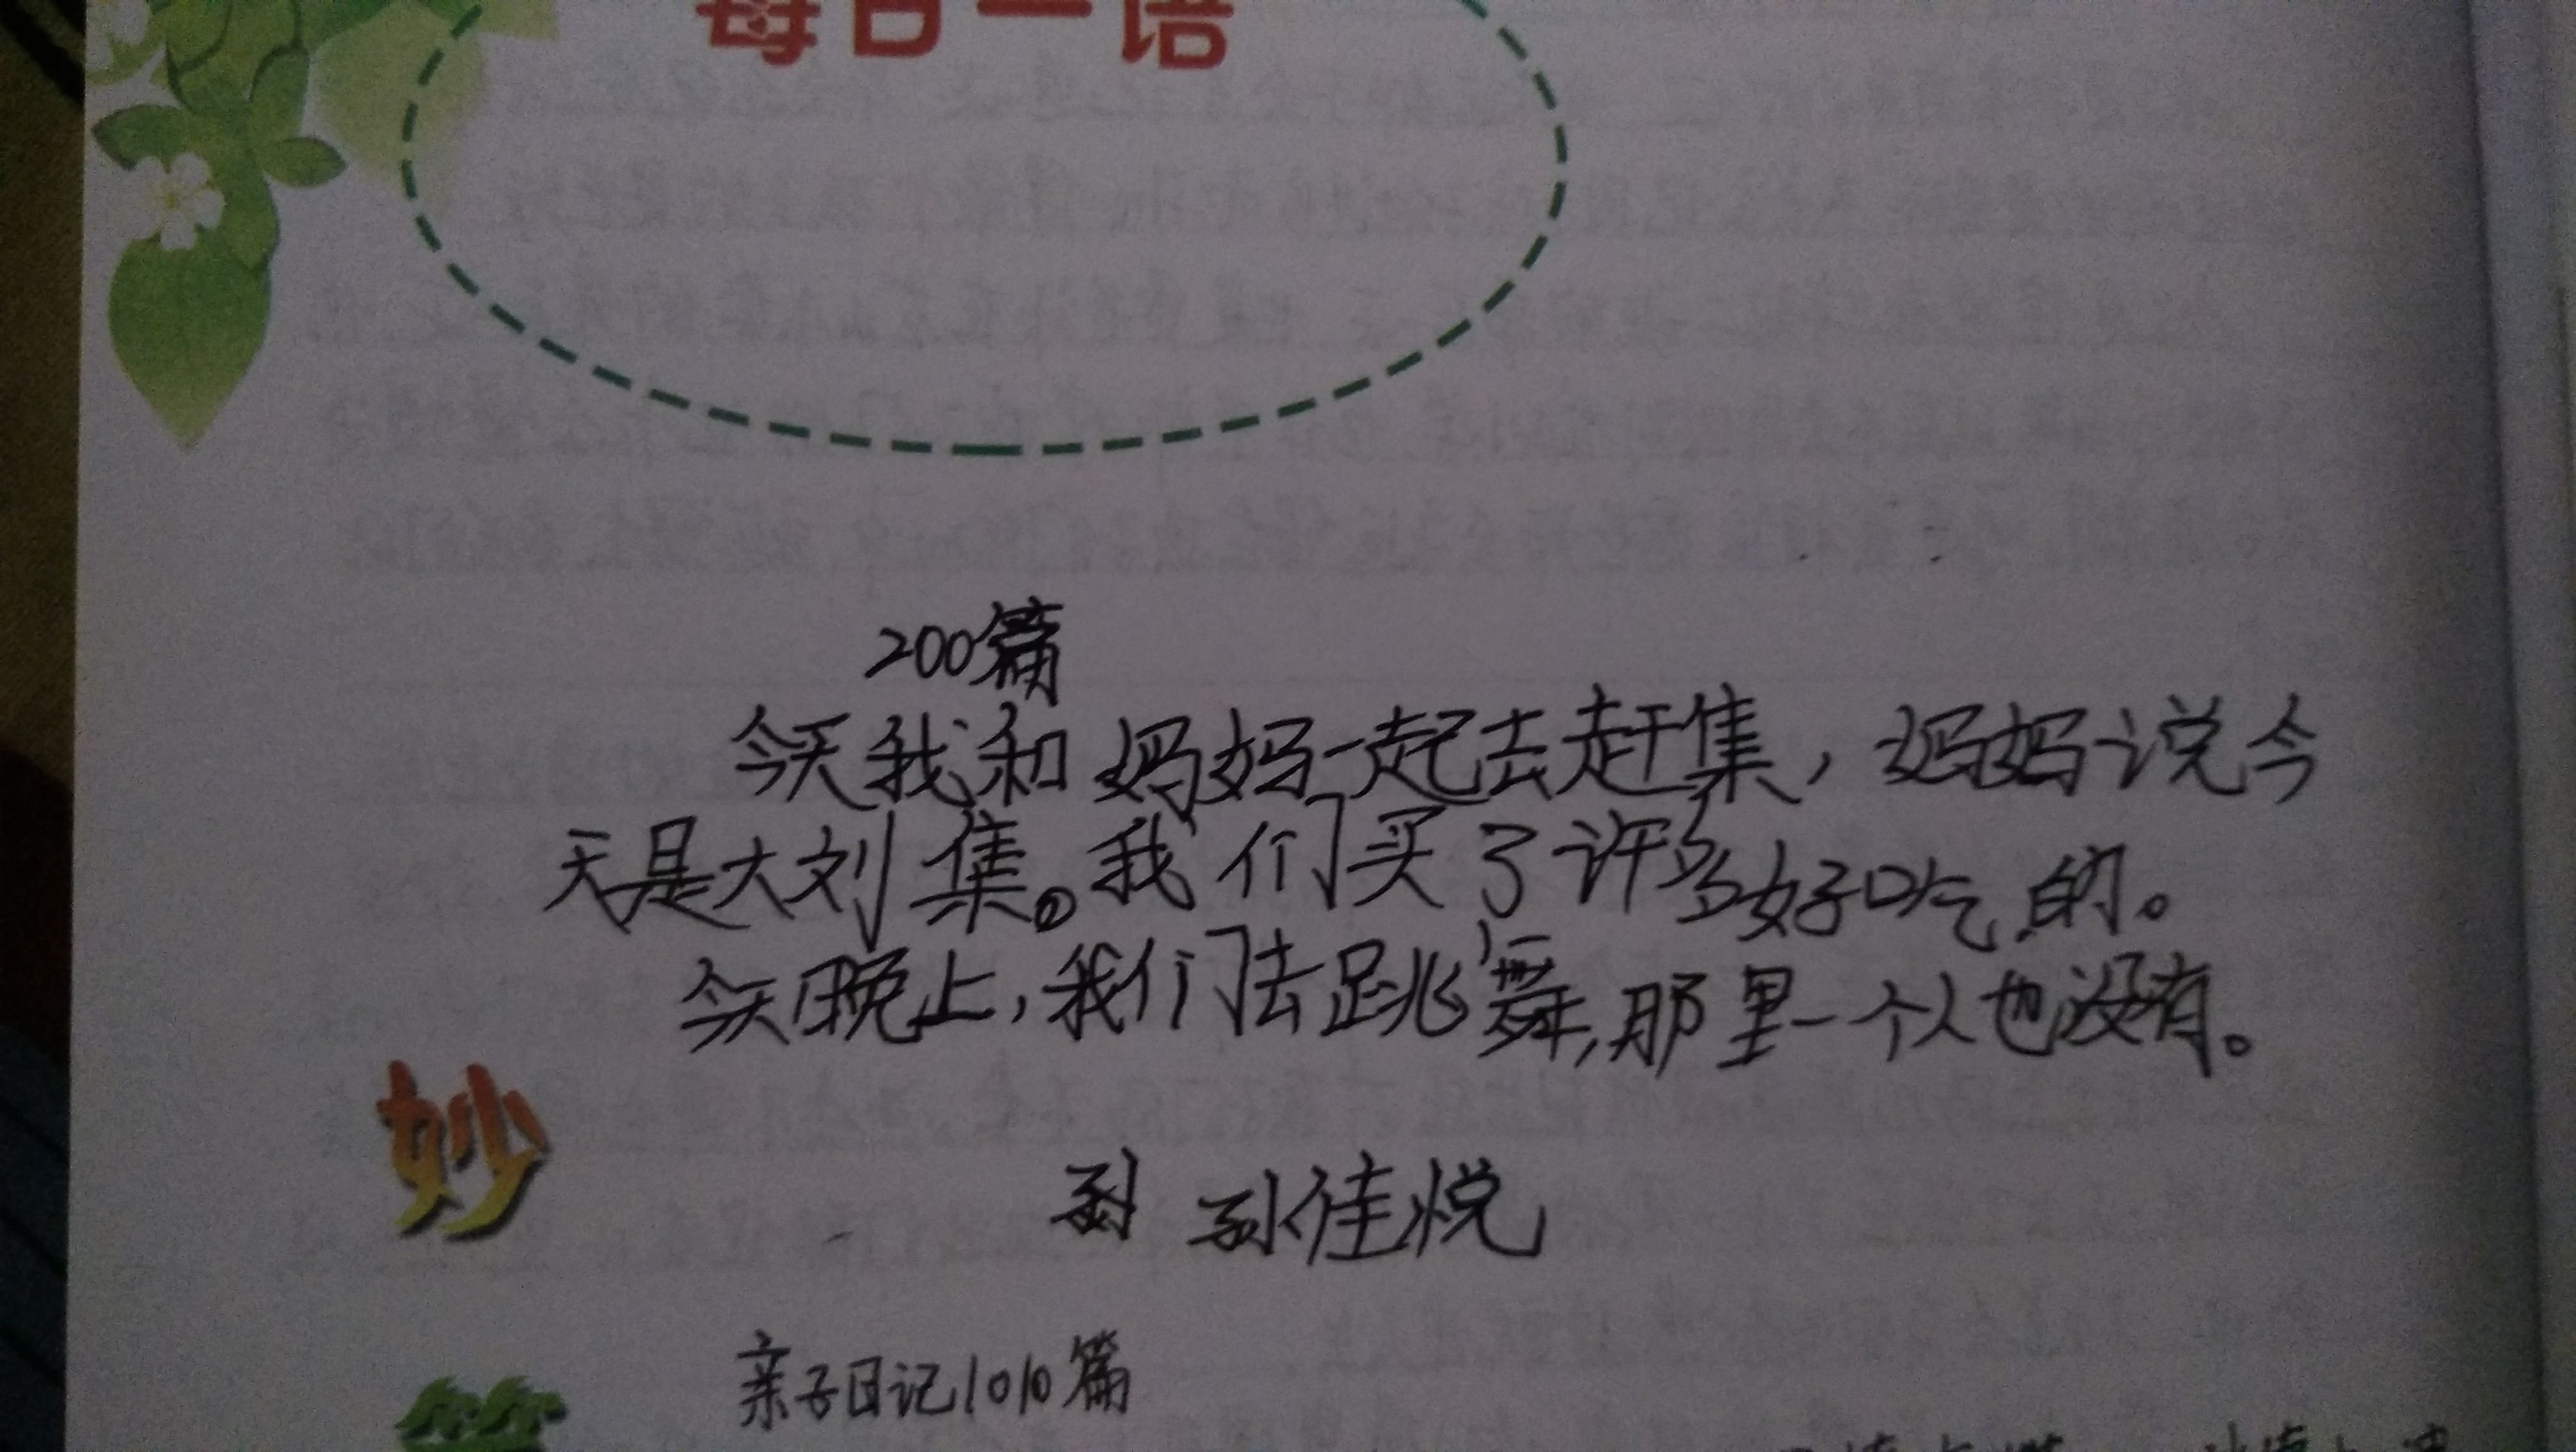 每日一语
200篇
今天我和妈妈一起去赶集，妈妈说今
天是大刘集。我们买了许多好吃的。
今天晚上，我们去跳舞，那里一个人也没有。
妙
孙佳悦
亲子日记1010篇
笔